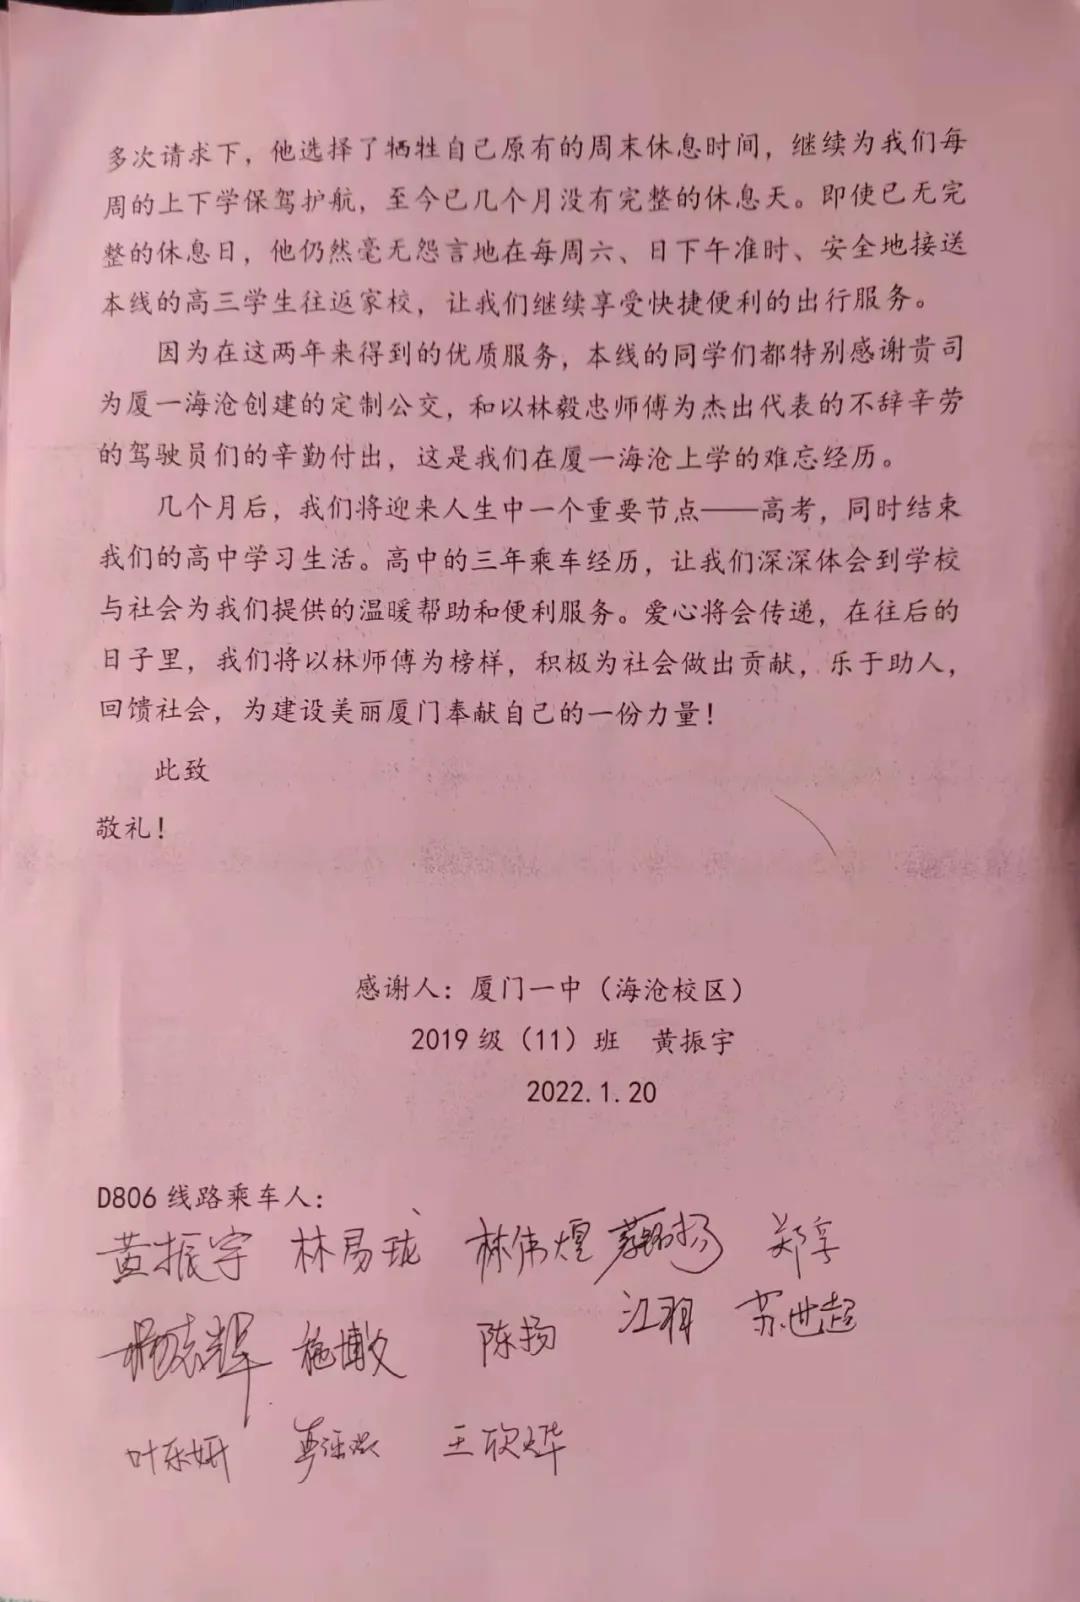 多次请求下，他选择了牺牲自己原有的周末休息时间，继续为我们每
周的上下学保驾护航，至今已几个月没有完整的休息天。即使已无完
整的休息日，他仍然毫无怨言地在每周六、日下午准时、安全地接送
本线的高三学生往返家校，让我们继续享受快捷便利的出行服务。
因为在这两年来得到的优质服务，本线的同学们都特别感谢贵司
为厦一海沧创建的定制公交，和以林毅忠师傅为杰出代表的不辞辛劳
的驾驶员们的辛勤付出，这是我们在厦一海沧上学的难忘经历。
几个月后，我们将迎来人生中一个重要节点——高考，同时结束
我们的高中学习生活。高中的三年乘车经历，让我们深深体会到学校
与社会为我们提供的温暖帮助和便利服务。爱心将会传递，在往后的
日子里，我们将以林师傅为榜样，积极为社会做出贡献，乐于助人，
回馈社会，为建设美丽厦门奉献自己的一份力量！
此致
敬礼！
感谢人：厦门一中（海沧校区）
2019 级（11）班　黄振宇
2022.1.20
D806 线路乘车人：
黄振宇 林易珑 林伟煌 郑享
施博文 陈扬 江羽 苏世超
叶乐妍 王欣烨